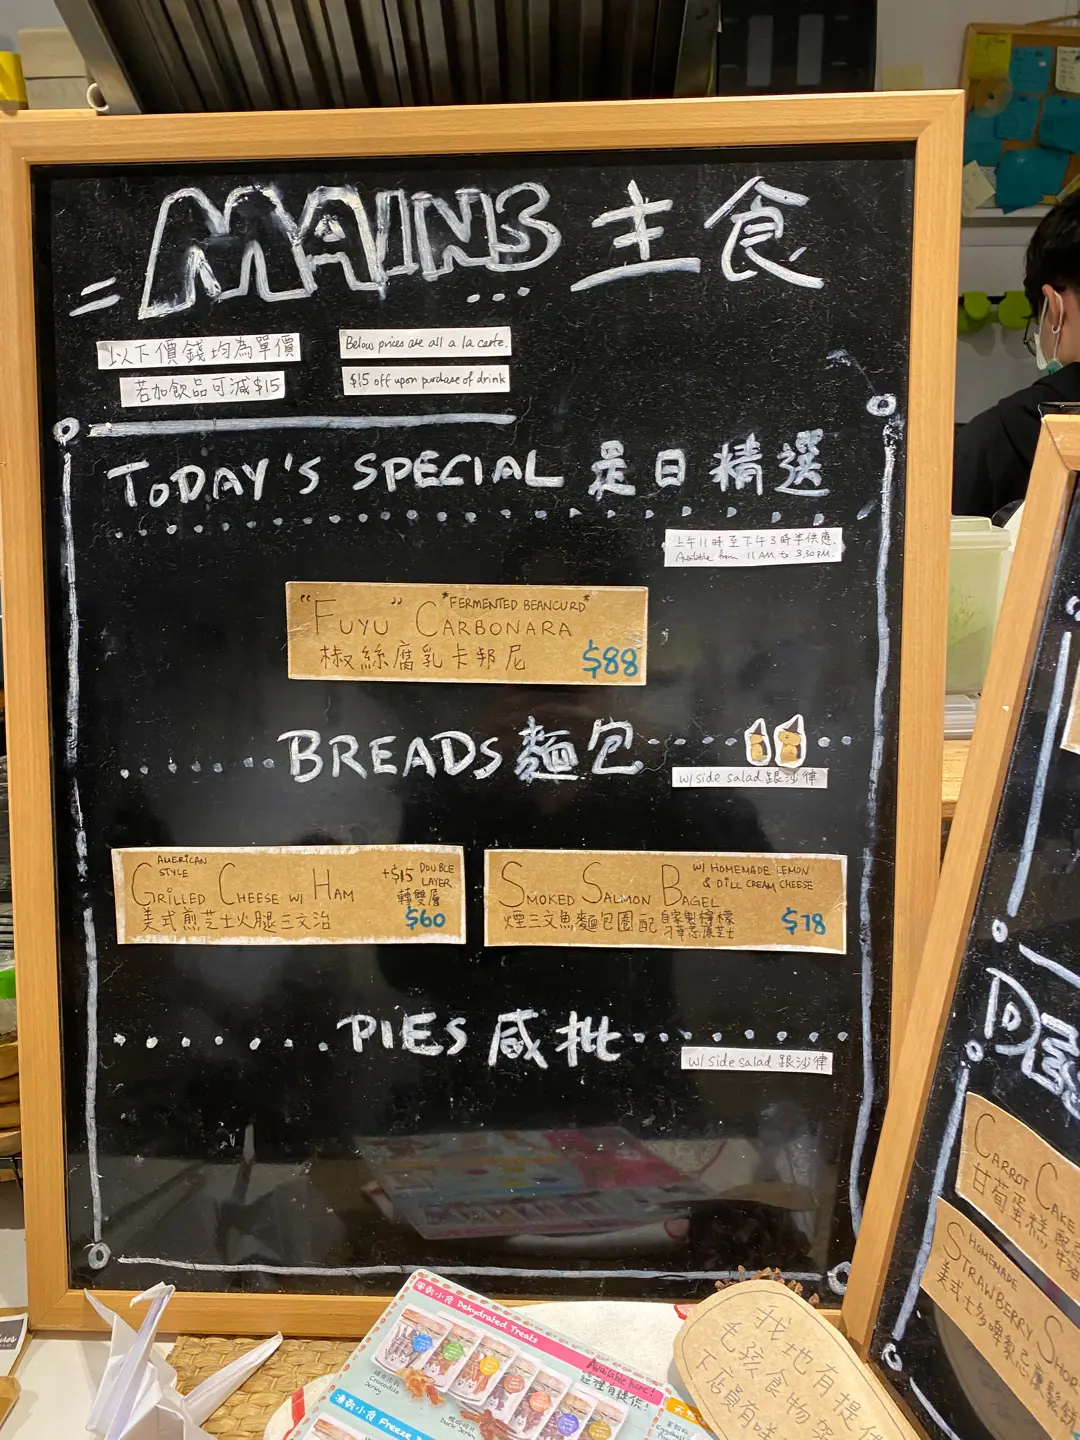 MAINS 主食
以下價錢均為單價
若加飲品可減$15
Below prices are all a la carte.
$15 off upon purchase of drink
TODAY'S SPECIAL 是日精選
上午11時至下午3時半供應.
Available from 11AM to 3.30PM.
"FUYU" CARBONARA
*FERMENTED BEANCURD*
椒絲腐乳卡邦尼 $88
BREADS 麵包
w/ side salad 跟沙律
AMERICAN STYLE
GRILLED CHEESE W/ HAM
美式煎芝士火腿三文治
+$15 DOUBLE LAYER
轉雙層
$60
SMOKED SALMON BAGEL
W/ HOMEMADE LEMON
& DILL CREAM CHEESE
煙三文魚麵包圈配自家製檸檬
忌廉芝士
$78
PIES 咸批
w/ side salad 跟沙律
CARROT CAKE
甘荀蛋糕
HOMEMADE
STRAWBERRY
Dehydrated Treats
Available here!
這裡有提供!
Crocodile Jerky
Duck Jerky
我地有提供
毛孩食物